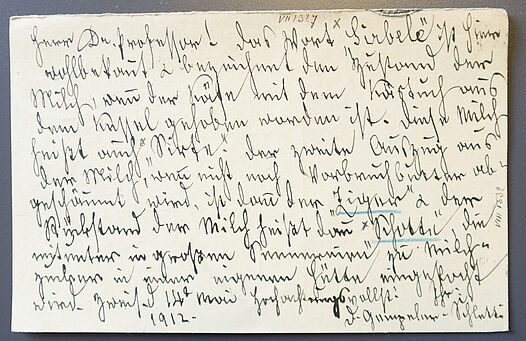 VII 1327
Herr Dr. Professor! Das Wort "Sirbelè" ist hier
wohlbekant & bezeichnet den Zustand der
Milch, wen der Käse mit dem Kästuch aus
dem Kessel gehoben worden ist. Diese Milch
heißt auch Sirte. Der zweite Auszug aus
der Milch, wen nicht noch Vorbruchbutter ab-
geschäumt wird, ist dan der "Ziger" & der
Rückstand der Milch heißt dan "Schotte", die
mitunter in großen Sennereien zu Milch-
zucker in einer eigenen Hütte eingekocht
wird. Zweis. d 14t Mai Hochachtungsvollst! Ihr
1912. D. Gempeler-Schletti
VIII 7832